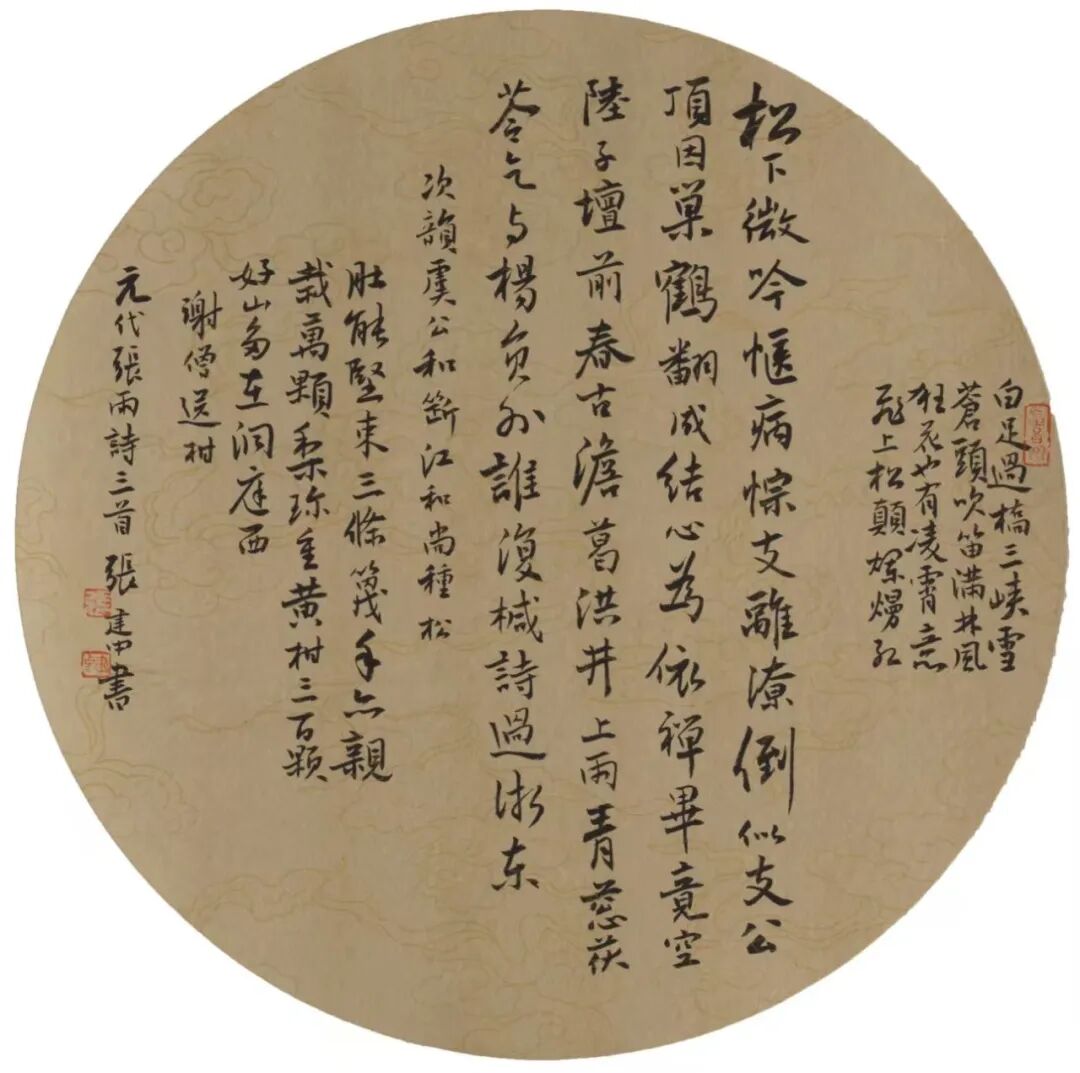 白足過橋三峽雪
蒼頭吹笛滿林風
狂花也有凌霄意
飛上松顛爛熳紅
松下微吟愜病悰支離潦倒似支公
頂因巢鶴翻成結心為依禪畢竟空
陸子壇前春古澹葛洪井上雨青蔥茯
苓乞与楊負外誰復椷詩過浙东
次韻虞公和斷江和尚種松
肚能堅束三條篾手亦親
栽萬顆梨珍重黃柑三百顆
好山多在洞庭西
謝僧送柑
元代張雨詩三首 張建中書